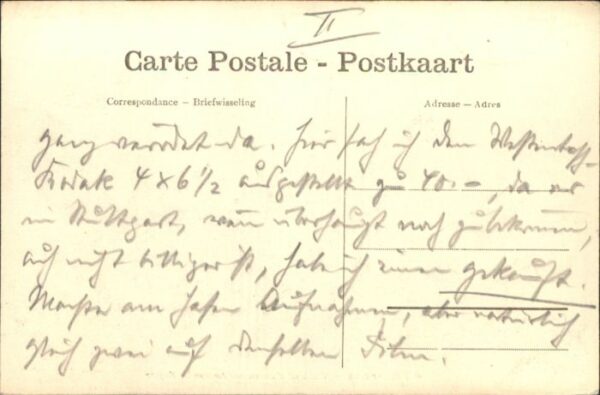 II
Carte Postale - Postkaart
Correspondance – Briefwisseling
Adresse – Adres
ganz verödet da. Hier sah ich den Westentasch-
Kodak 4 x 6 1/2 ausgestellt zu 40.–, da er
in Stuttgart, wenn überhaupt noch zu bekommen,
auch nicht billiger ist, hab ich einen gekauft.
Machte am Hafen Aufnahmen, aber natürlich
gleich zwei auf denselben Film.